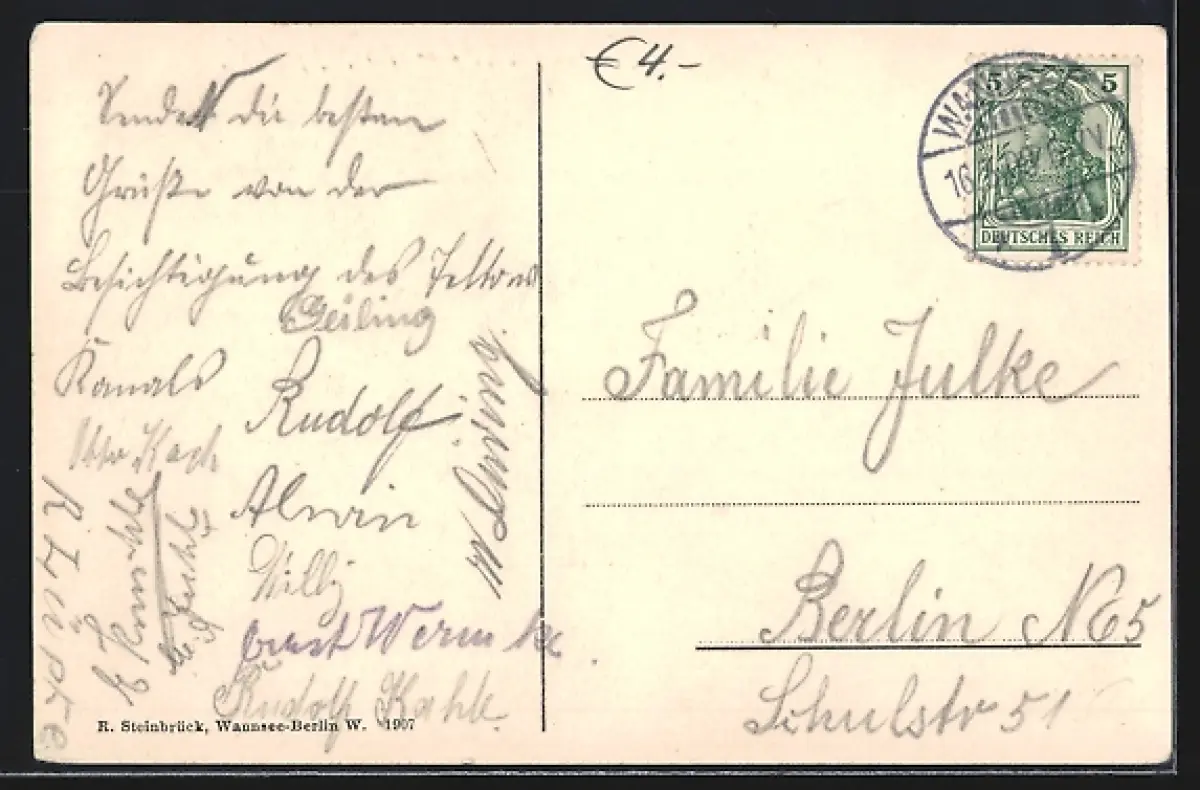 € 4.-
Sendet die besten
Grüße von der
Besichtigung des Teltow
Kanals
Geiling
Rudolf
Otto Koch
Alwin
Willy
Ernst Wermke
Rudolf Kahle
R. Steinbrück, Wannsee-Berlin W. 1907
5 5
DEUTSCHES REICH
Familie Julke
Berlin N65
Schulstr 51